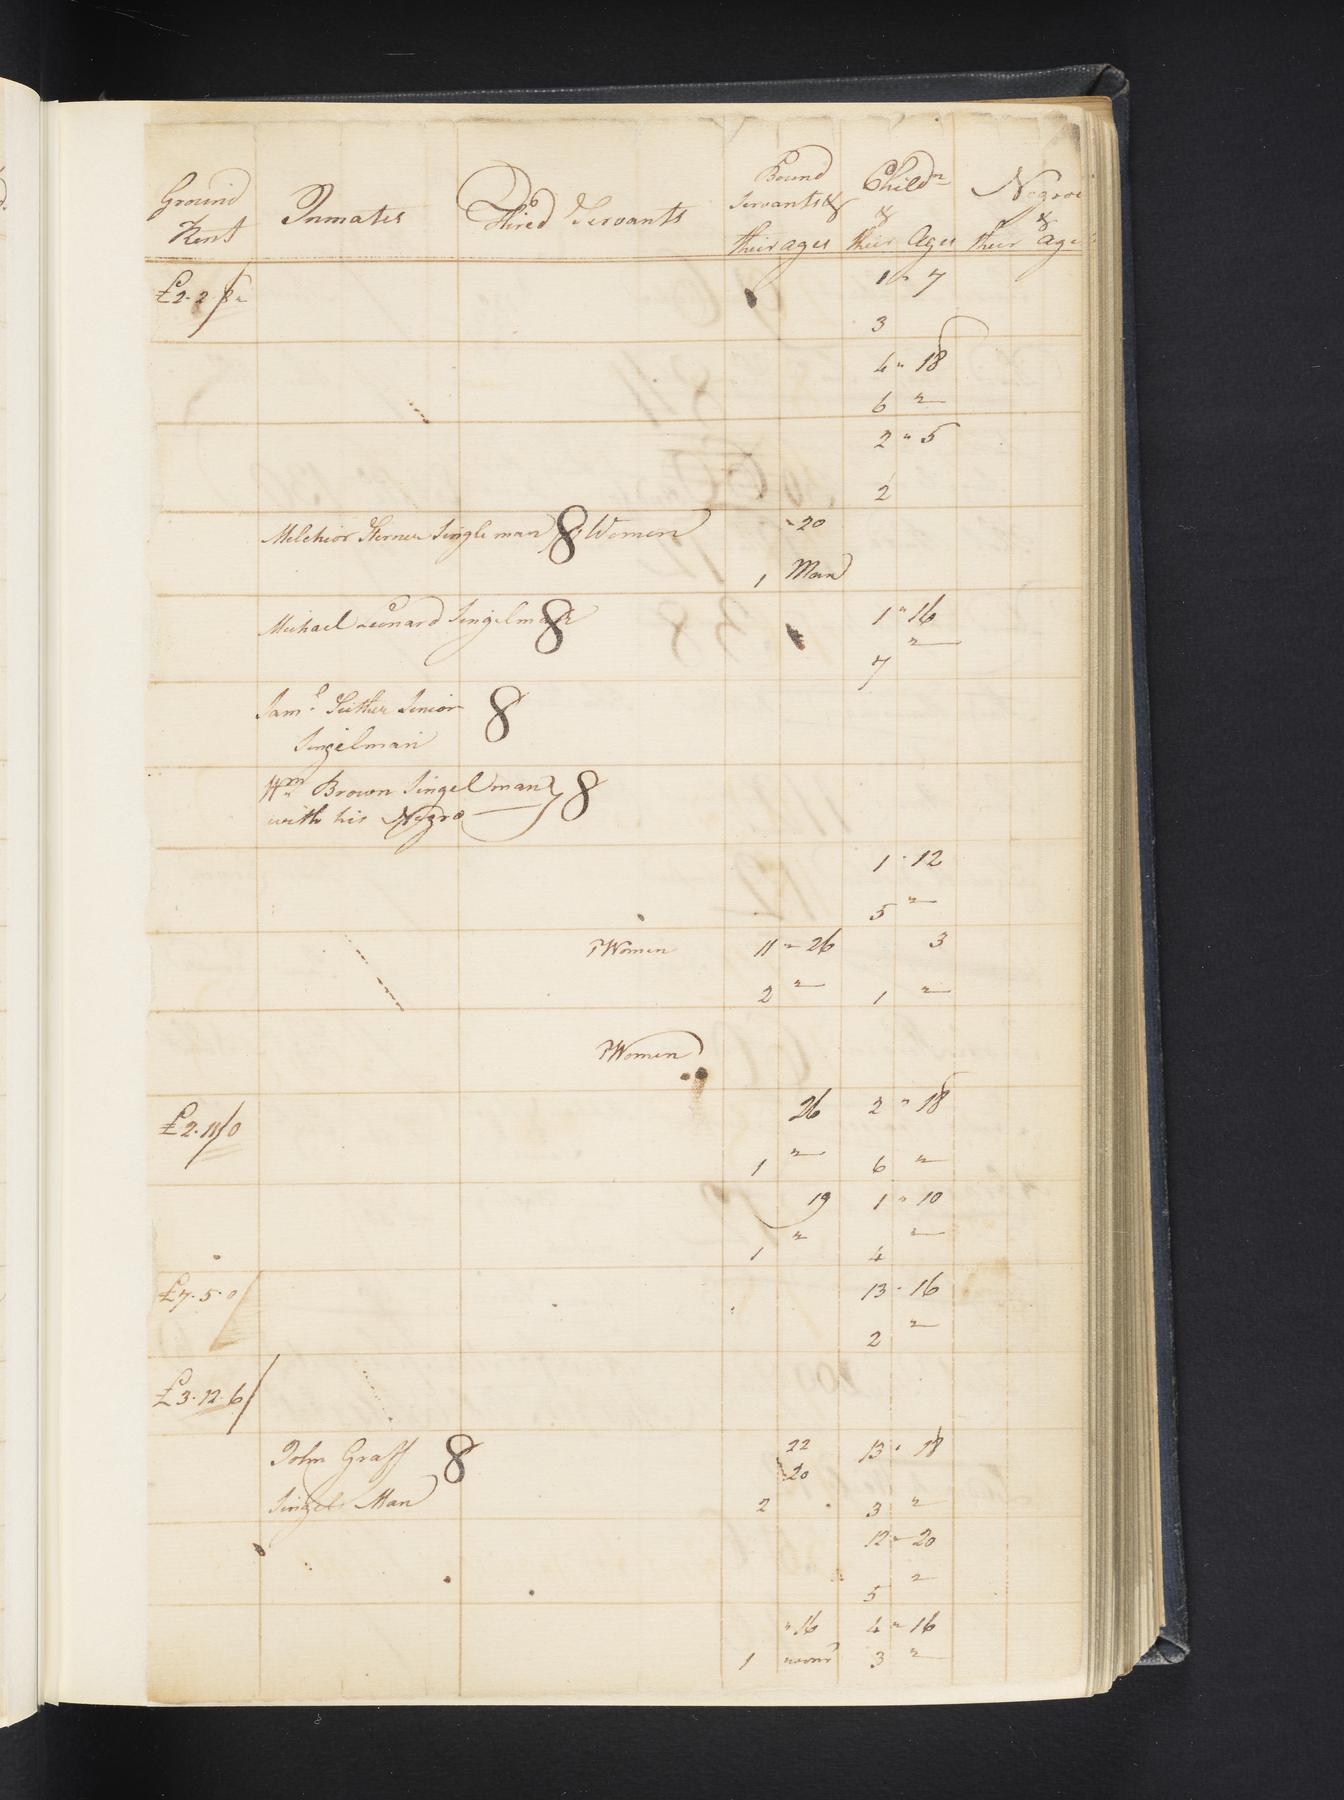 Ground Rent
Inmates
Hired Servants
Bound Servants & their ages
Childn & their Ages
Negroes & their Age
£2.2.
1 " 7
3
4 " 18
6 "
2 " 5
2
Melchior Singleman 8 Women
" 20
1 Man
Michael Leonard Singelman 8
1 " 16
7 "
Saml Senior 8
Singelman
Wm Brown Singelman 8
with his Negro
1 " 12
5 "
1 Women
11 " 26
3
2 "
1 "
1 Women
£2.11/0
26
2 " 18
1 "
6 "
19
1 " 10
1 "
4 "
£7.5.0
13 " 16
2 "
£3.12.6
John Graff 8
22
13 " 18
20
Singel Man
2
3 "
12 " 20
5 "
" 16
4 " 16
1
3 "